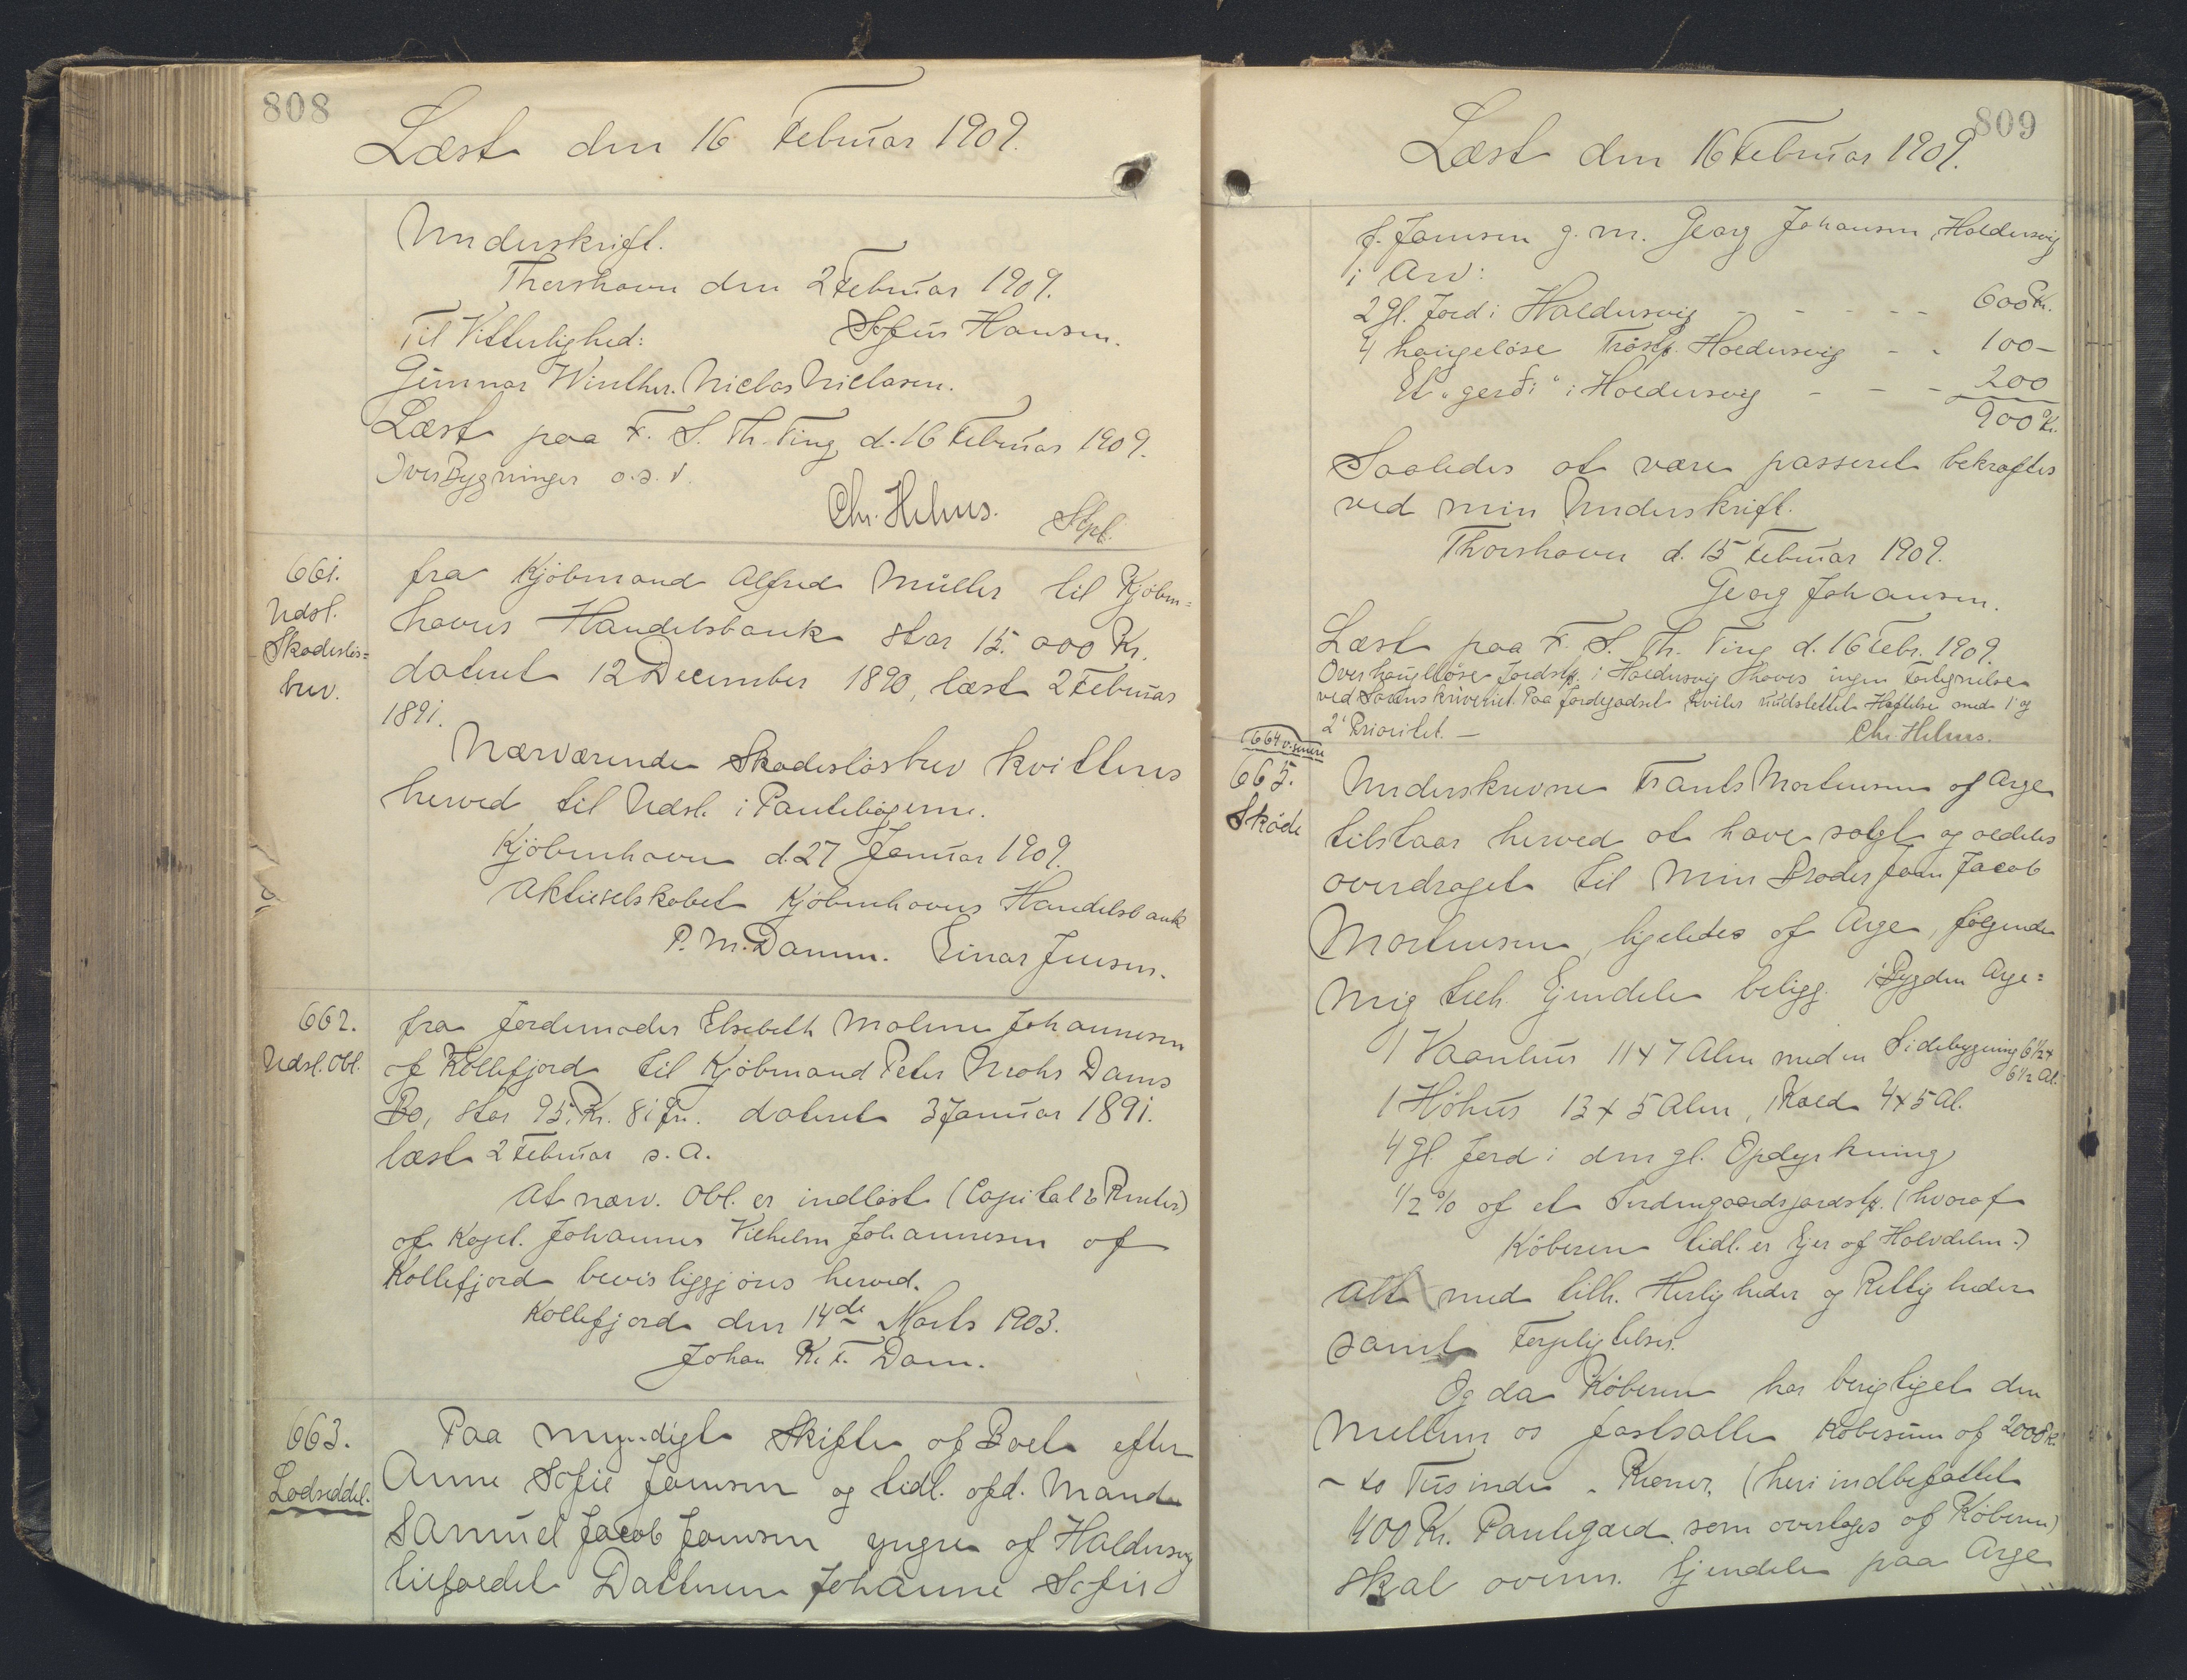 808
Læst den 16 Februar 1909.
Underskrift.
Thorshavn den 2 Februar 1909.
Til Vitterlighed: Sofus Hansen.
Gunnar Winther. Niclas Niclasen.
Læst paa F. S. Th. Ting d. 16 Februar 1909.
Over Bygninger o.s.v.
Chr. Helms. Stpl.
661.
Udsl.
Skadesløs=
brev.
fra Kjöbmand Alfred Müller til Kjöben=
havns Handelsbank stor 15.000 Kr.
dateret 12 December 1890, læst 2 Februar
1891.
Nærværende Skadeslösbrev kvitteres
herved til Udsl. i Pantebögerne.
Kjöbenhavn d. 27 Januar 1909.
Aktieselskabet Kjöbenhavns Handelsbank
P. M. Damm. Einar Jensen.
662.
Udsl. Obl.
fra Jordemoder Elsebeth Malene Johannesen
af Kollefjord til Kjöbmand Peter Mohr Dams
Bo, stor 95 Kr. 81 Ør. dateret 3 Januar 1891.
læst 2 Februar s. A.
At nærv. Obl. er indlöst (Capital & Renter)
af Kapt. Johannes Vilhelm Johannesen af
Kollefjord bevisliggjöres herved.
Kollefjord den 14de Marts 1903.
Johan K. F. Dam.
663.
Lodseddel.
Paa myndigt Skifte af Boet efter
Anne Sofie Joensen og tidl. afd. Mand
Samuel Jacob Joensen yngre af Haldersvig
tilfaldt Datteren Johanne Sofie
809
Læst den 16 Februar 1909.
f. Joensen g. m. Georg Johansen, Haldersvig
i Arv:
2 gl. Jord i Haldersvig - - - - - 600 Kr.
4 haugelöse Tröstk. Haldersvig - - 100 -
Et "gerði" i Haldersvig - - - 200
900 Kr.
Saaledes at være passeret bekræftes
ved min Underskrift.
Thorshavn d. 15 Februar 1909.
Georg Johansen.
Læst paa F. S. Th. Ting d. 16 Febr. 1909.
Over haugelöse Jordstk. i Haldersvig haves ingen Fortegnelse
ved Sorenskriveriet. Paa Jordegodset hviler uudslettet Hæftelse med 1' og
2' Prioritet. — Chr. Helms.
664 v. senere
665.
Sköde
Underskrevne Frants Mortensen af Arge
tilstaar herved at have solgt og aldeles
overdraget til min Broder Joen Jacob
Mortensen, ligeledes af Arge, fölgende
mig tilh. Ejendele beligg. i Bygden Arge:
1 Vaanhus 11 x 7 Alen med en Sidebygning 6½ x
6½ Al.
1 Höhus 13 x 5 Alen, 1 Kald 4 x 5 Al.
4 gl. Jord i den gl. Opdyrkning
½ % af et Jordstk. (hvoraf
Köberen tidl. er Ejer af Halvdelen.)
Alt med tilh. Herligheder og Rettigheder
samt Forpligtelser.
Og da Köberen har berigtiget den
mellem os fastsatte Köbesum af 2000 Kr.
- to Tusinde - Kroner, (heri indbefattet
400 Kr. Pantegæld som overtages af Köberen)
skal ovenn. Ejendele paa Arge